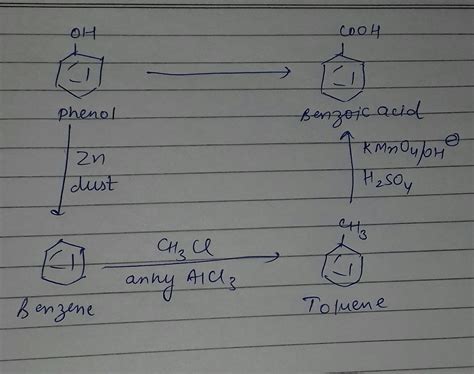 OH
COOH
phenol
Benzoic acid
Zn
dust
KMnO4/OH⊖
H2SO4
CH3Cl
anhy AlCl3
CH3
Benzene
Toluene